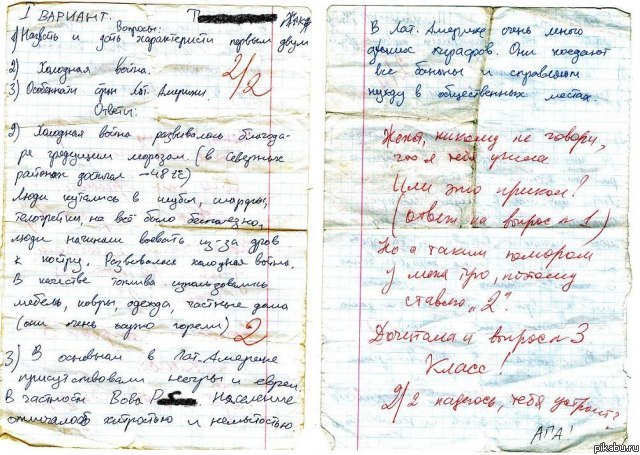 I ВАРИАНТ.
Вопросы:
1) Назвать и дать характеристи первым двум
2) Холодная война.
2/2
3) Особенности стран Лат. Америки
Ответы:
2) Холодная война развивалась благода-
ря грядущим морозам. (в северных
районах достигал -48
Люди кутались в шубы, шарфы,
телогрейки, но всё было бесполезно,
люди начинали воевать из-за дров
к костру. Развивалась холодная война.
В качестве топлива использовались
мебель, ковры, одежда, частные дома
(они очень хорошо горели)
2
3) В основном в Лат. Америке
присутствовали негры и евреи.
В частности Вова Р. Население
отличалось хитростью и немытостью.
В Лат. Америке очень много
диких жирафов. Они поедают
все бананы и справляют
нужду в общественных местах.
Женя, никому не говори,
что я тебя учила.
Или это прикол?
(ответ на вопрос n 1)
Но с таким юмором
у меня туго, потому
ставлю „2".
Дочитала и вопрос n 3
Класс!
2/2 надеюсь, тебя устроит?
АГА!
pikabu.ru